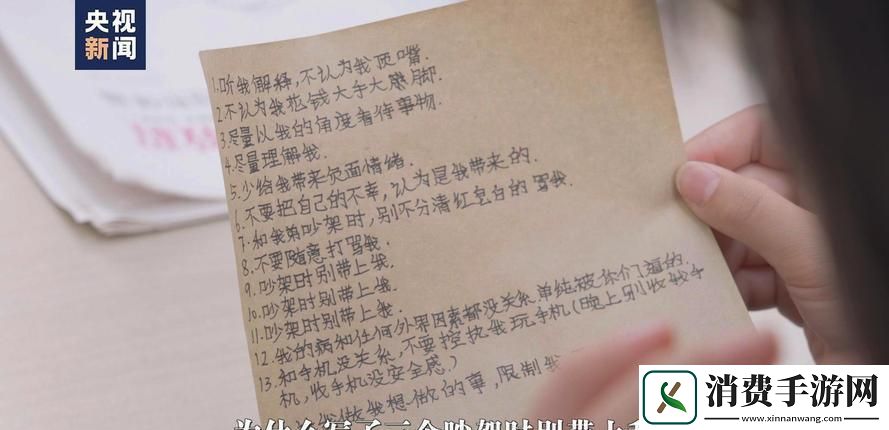 央视
新闻
1.听我解释,不认为我顶嘴.
2.不认为我花钱大手大脚.
3.尽量以我的角度看待事物.
4.尽量理解我.
5.少给我带来负面情绪.
6.不要把自己的不幸,认为是我带来的.
7.和我弟吵架时,别不分清红皂白的骂我.
8.不要随意打骂我.
9.吵架时别带上我.
10.吵架时别带上我.
11.吵架时别带上我.
12.我的病和任何外界因素都没关系,单纯被你们逼的.
13.和手机没关系,不要控执我玩手机(晚上别收我手
机,收手机没安全感.)
做我想做的事,限制我
为什么写了三个吵架时别带上
消费手游网
www.xinnanwang.com